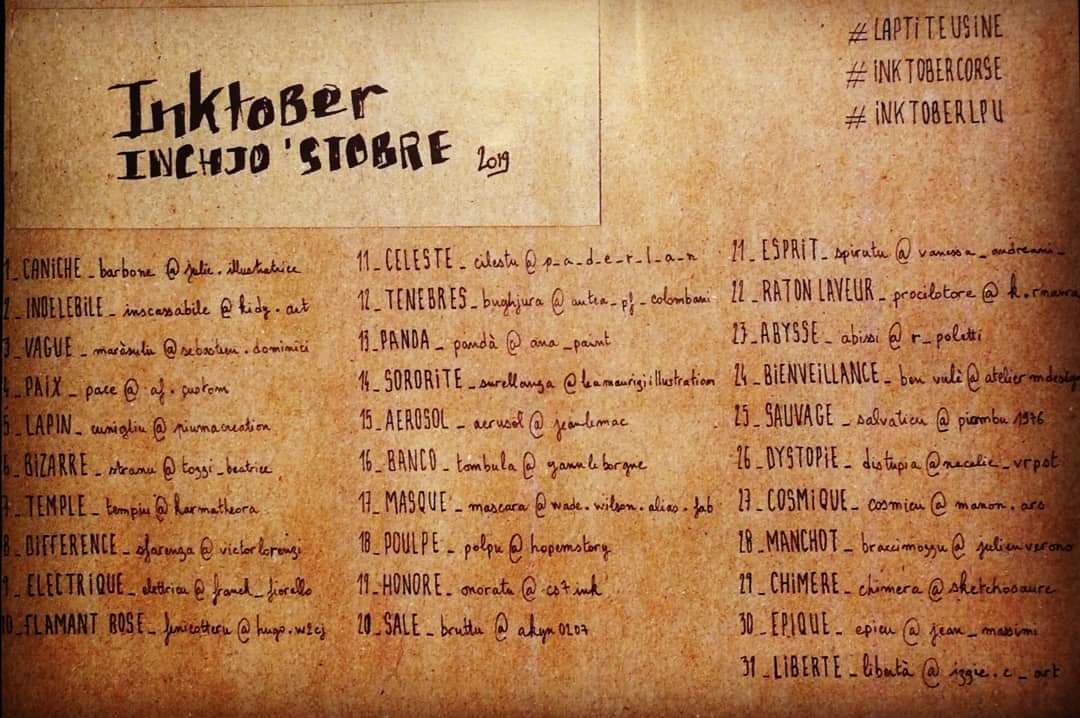 Inktober
INCHJO'STOBRE 2019
#LAPTITEUSINE
#INKTOBERCORSE
#INKTOBERLPU
1_CANICHE_barbone @julie.illustratrice
2_INDELEBILE_inscassabile @kidy.art
3_VAGUE_maràsulu @sebastien.dominici
4_PAIX_pace @af.custom
5_LAPIN_cunigliu @piumacreation
6_BIZARRE_stranu @tozzi_beatrice
7_TEMPLE_tempiu @karmatheora
8_DIFFERENCE_sfarenza @victorlorenzi
9_ELECTRIQUE_elettricu @franck_fiorello
10_FLAMANT ROSE_finicotteru @hugo.w2cj
11_CELESTE_cilestu @p_a_d_e_r_l_a_n
12_TENEBRES_bughjura @autea_pf_colombani
13_PANDA_pandà @ana_paint
14_SORORITE_surellanza @leamaurizi illustration
15_AEROSOL_aerusòl @jeanlemac
16_BANCO_tombula @yannleborgne
17_MASQUE_mascara @wade.wilson.alias.fab
18_POULPE_polpu @hopemstory
19_HONORE_onoratu @cs7ink
20_SALE_bruttu @akyn0207
21_ESPRIT_spiratu @vanessa_andreani_
22_RATON LAVEUR_procilotore @
23_ABYSSE_abissi @r_poletti
24_BIENVEILLANCE_ben vulè @ateliermdesign
25_SAUVAGE_salvaticu @piombu1976
26_DYSTOPIE_distupia @necelie_vrpst
27_COSMIQUE_cosmicu @manon.ars
28_MANCHOT_braccimozzu @julienverono
29_CHIMERE_chimera @sketchosaure
30_EPIQUE_epicu @jean_massimi
31_LIBERTE_libertà @izzie.c_art